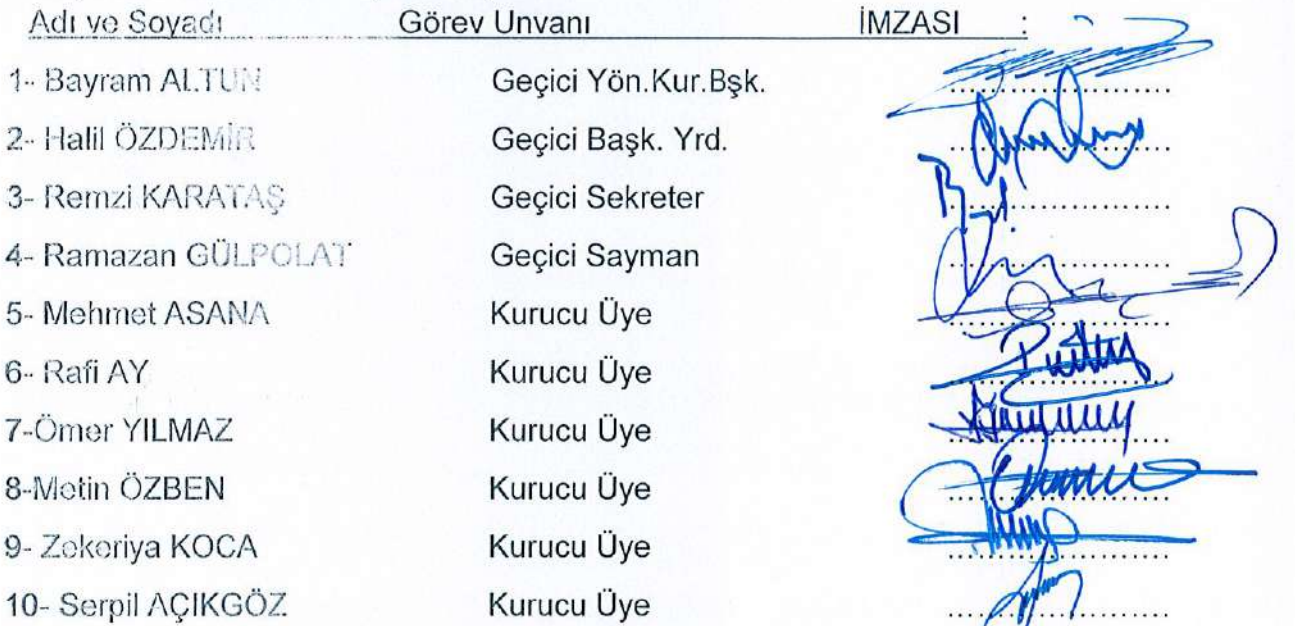 Adı ve Soyadı Görev Unvanı İMZASI :
1- Bayram ALTUN Geçici Yön.Kur.Bşk. ....................
2- Halil ÖZDEMİR Geçici Başk. Yrd. ....................
3- Remzi KARATAŞ Geçici Sekreter ....................
4- Ramazan GÜLPOLAT Geçici Sayman ....................
5- Mehmet ASANA Kurucu Üye ....................
6- Rafi AY Kurucu Üye ....................
7-Ömer YILMAZ Kurucu Üye ....................
8-Metin ÖZBEN Kurucu Üye ....................
9- Zekeriya KOCA Kurucu Üye ....................
10- Serpil AÇIKGÖZ Kurucu Üye ....................